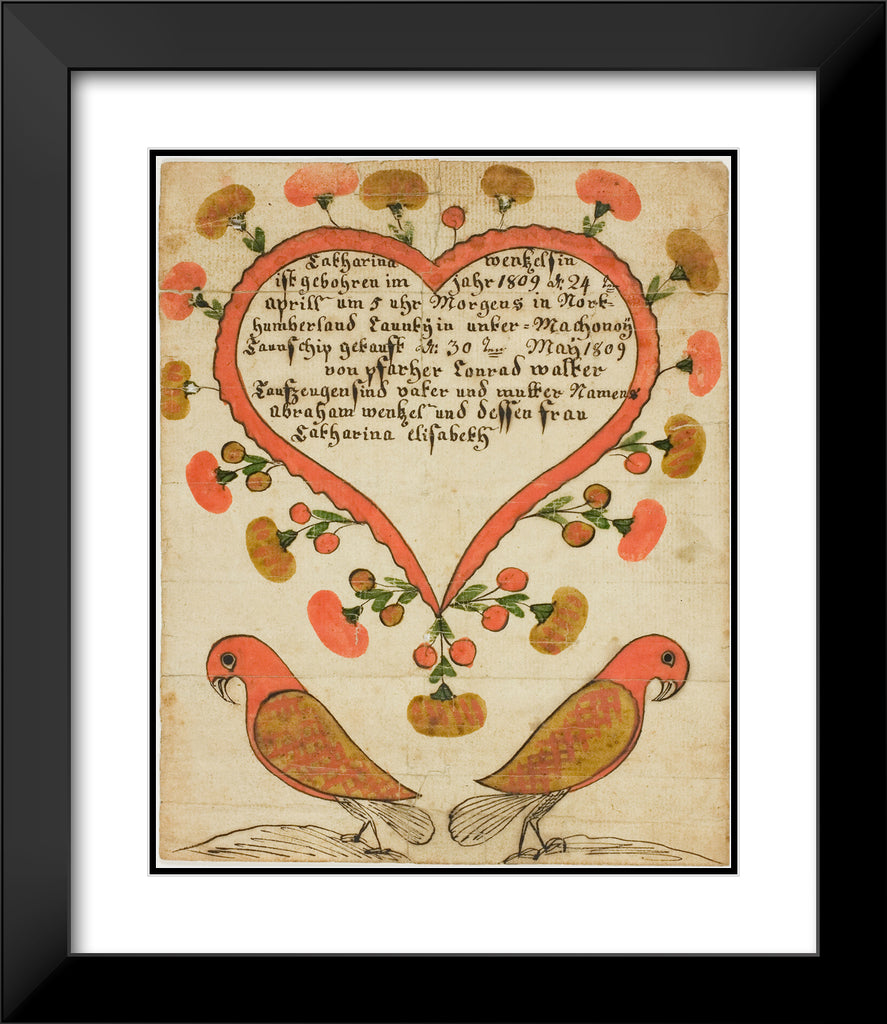 Catharina wentzelsin
ist gebohren im jahr 1809 d. 24 ten
aprill um 5 uhr Morgens in Nort-
humberland Countÿ in unter = Machonoÿ
Taunschip getauft d. 30 ten May 1809
von pfarher Conrad walter
Taufzeugen sind vater und mutter Namens
abraham wentzel und dessen frau
Catharina elisabeth